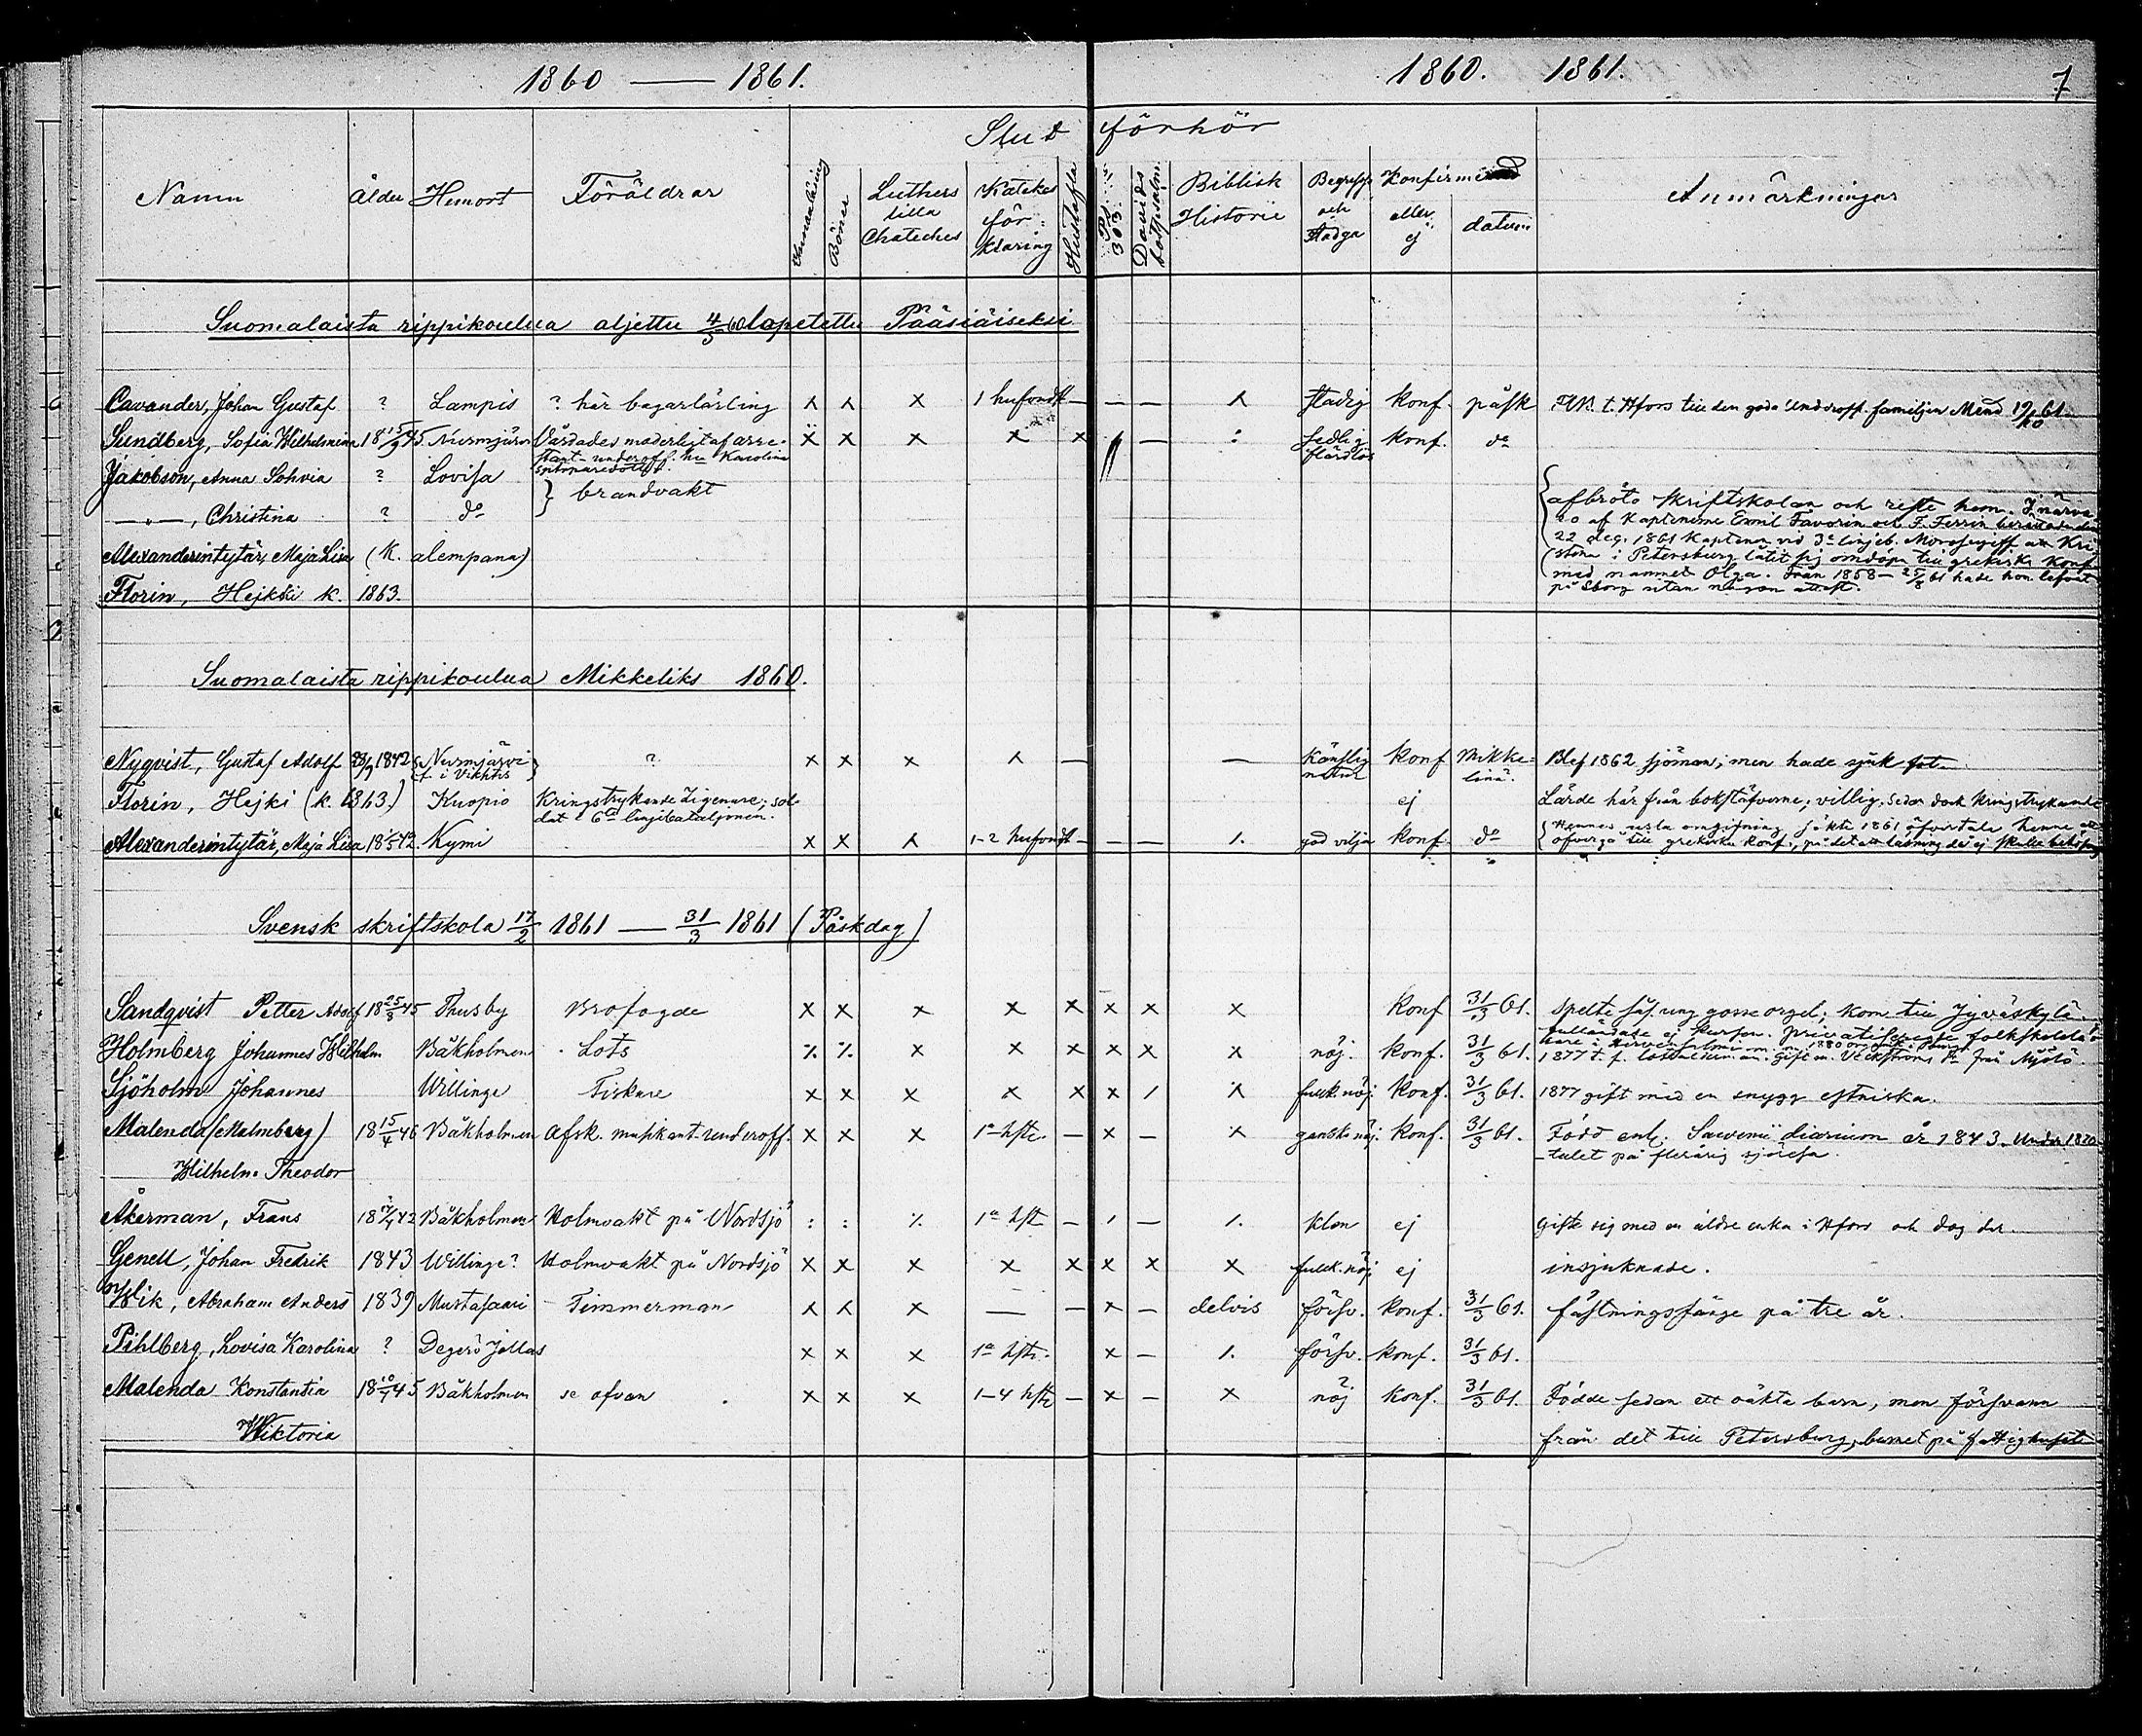 1860 — 1861.
1860. 1861.
7
Slut förhör
Namn Ålder Hemort Föräldrar Innanläsning Böner Luthers lilla Cateches Katekes förklaring Hustafla Ps. 303. Davids botpsalm. Biblisk Historie Begrepp och stadga Konfirmerad eller ej datum Anmärkningar
Suomalaista rippikoulua aljettu 4/3 60 lopetettu Pääsiäiseksi
Cavander, Johan Gustaf ? Lampis ? här bagarlärling x x x 1 hufvudst — — — x stadig konf. påsk t. Hfors till den goda underoff. familjen 61.
Sundberg, Sofia Wilhelmina 18 15/9 45 Nurmijärvi Vårdades moderligt af arre- x x x x x — : sedlig konf. do
stant-underoff. hu Karolina
flärdlös
Jakobson, Anna Sohvia ? Lovisa } brandvakt
—"—, Christina ? do
{ afbröto skriftskolan och reste hem. I närva-
ro af Kaptenerne Emil Favorin och F. Ferrin berättade den
22 aug. 1861 Kaptenen vid 3e linjeb. att Kri
stina i Petersburg låtit sig omdöpa till grekisk konf
med namnet Olga. Från 1858 — 25/8 61 hade hon lefvat
på Sborg utan någon attest.
Alexanderintytär, Maja Lisa (k. alempana)
Florin, Hejkki k. 1863.
Suomalaista rippikoulua Mikkeliks 1860.
Nyqvist, Gustaf Adolf 28/9 1842 { Nurmijärvi ? x x x x — — känslig konf Mikke- Blef 1862 sjöman; men hade sjuk fot.
f. i Vichtis } natur lina.
Florin, Hejki (k. 1863.) Kuopio Kringstrykande Zigenare; sol- ej Lärde här från bokstäfverne; villig. Sedan dock kringstrykande
dat i 6te linjibataljonen.
Alexanderintytär, Maja Lisa 18 1/5 42 Kymi x x x 1–2 hufvudst — — — 1. god vilja konf do { Hennes usla omgifning sökte 1861 öfvertala henne att
öfvergå till grekiska konf., på det att läsning då ej skulle behöfvas
Svensk skriftskola 17/2 1861 — 31/3 1861 (Påskdag)
Sandqvist Petter Adolf 18 25/3 45 Thusby Brofogde x x x x x x x x Konf 31/3 61. Spelte såsom ung gosse orgel; kom till Jyväskylä.
fulländade ej kursen. folkskolelä-
rare i
Holmberg Johannes Wilhelm Båkholmen Lots ٪ ٪ x x x x x x nöj. konf. 31/3 61. 1877 t. f. Gift m. Veckströms dr från Mjölö
Sjöholm Johannes Willinge Fiskare x x x x x x / x fullk. nöj. konf. 31/3 61. 1877 gift med en snygg estniska.
Malenda (Malmberg) 18 15/4 46 Båkholmen Afsk. musikant-underoff. x x x 1a hfte. — x — x ganska nöj. konf. 31/3 61. Född enl. diarium år 1843. Under 1870
Wilhelm Theodor -talet på flerårig sjöresa.
Åkerman, Frans 18 42 Båkholmen Holmvakt på Nordsjö : : ٪ 1a hft — / — 1. klen ej gifte sig med en äldre enka i Hfors och dog der.
Genell, Johan Fredrik 1843 Willinge? Holmvakt på Nordsjö x x x x x x x x fullk. nöj. ej insjuknade.
Wik, Abraham Anders 1839 Mustasaari Timmerman x x x — — x — delvis försv. konf. 31/3 61. fästningsfånge på tre år.
Pihlberg, Lovisa Karolina ? Degerö Jollas x x x 1a hfte. x — 1. försv. konf. 31/3 61.
Malenda Konstantia 18 45 Båkholmen se ofvan x x x 1–4 hfte — x — x nöj konf. 31/3 61. Födde sedan ett oäkta barn, men försvann
Wiktoria från det till Petersburg, barnet på fattighuset